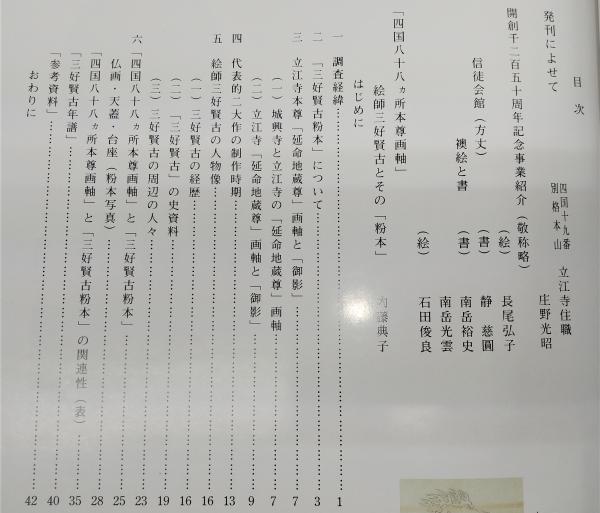 目次
発刊によせて
四国十九番 立江寺住職
別格本山 庄野光昭
開創千二百五十周年記念事業紹介(敬称略)
信徒会館(方丈)
襖絵と書
(絵) 長尾弘子
(書) 静慈圓
(書) 南岳裕史
南岳光雲
(絵) 石田俊良
「四国八十八ヵ所本尊画軸」
絵師三好賢古とその「粉本」
内藤典子
はじめに
一 調査経緯 1
二 「三好賢古粉本」について 3
三 立江寺本尊「延命地蔵尊」画軸と「御影」 7
(一)城興寺と立江寺の「延命地蔵尊」画軸 7
(二)立江寺「延命地蔵尊」画軸と「御影」 9
四 代表的二大作の制作時期 13
五 絵師三好賢古の人物像 16
(一)三好賢古の経歴 16
(二)「三好賢古」の史資料 19
(三)三好賢古の周辺の人々 23
六 「四国八十八ヵ所本尊画軸」と「三好賢古粉本」 25
仏画・天蓋・台座(粉本写真) 28
「四国八十八ヵ所本尊画軸」と「三好賢古粉本」の関連性(表) 35
「三好賢古年譜」 40
「参考資料」 42
おわりに